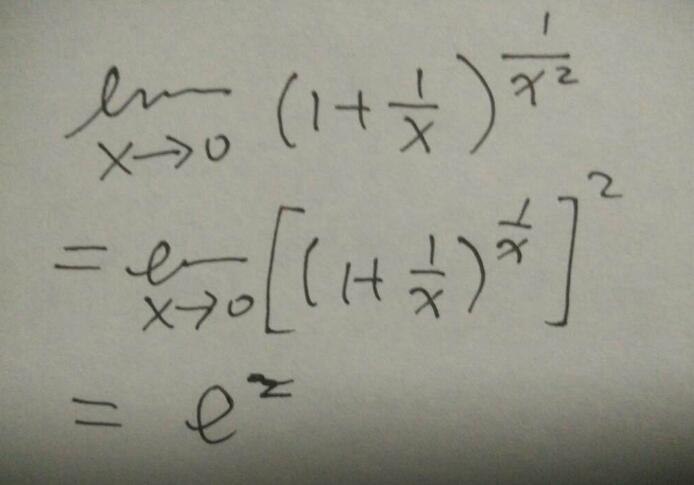 lim x→0 (1+1/x)^(1/x²)
= lim x→0 [(1+1/x)^(1/x)]²
= e²